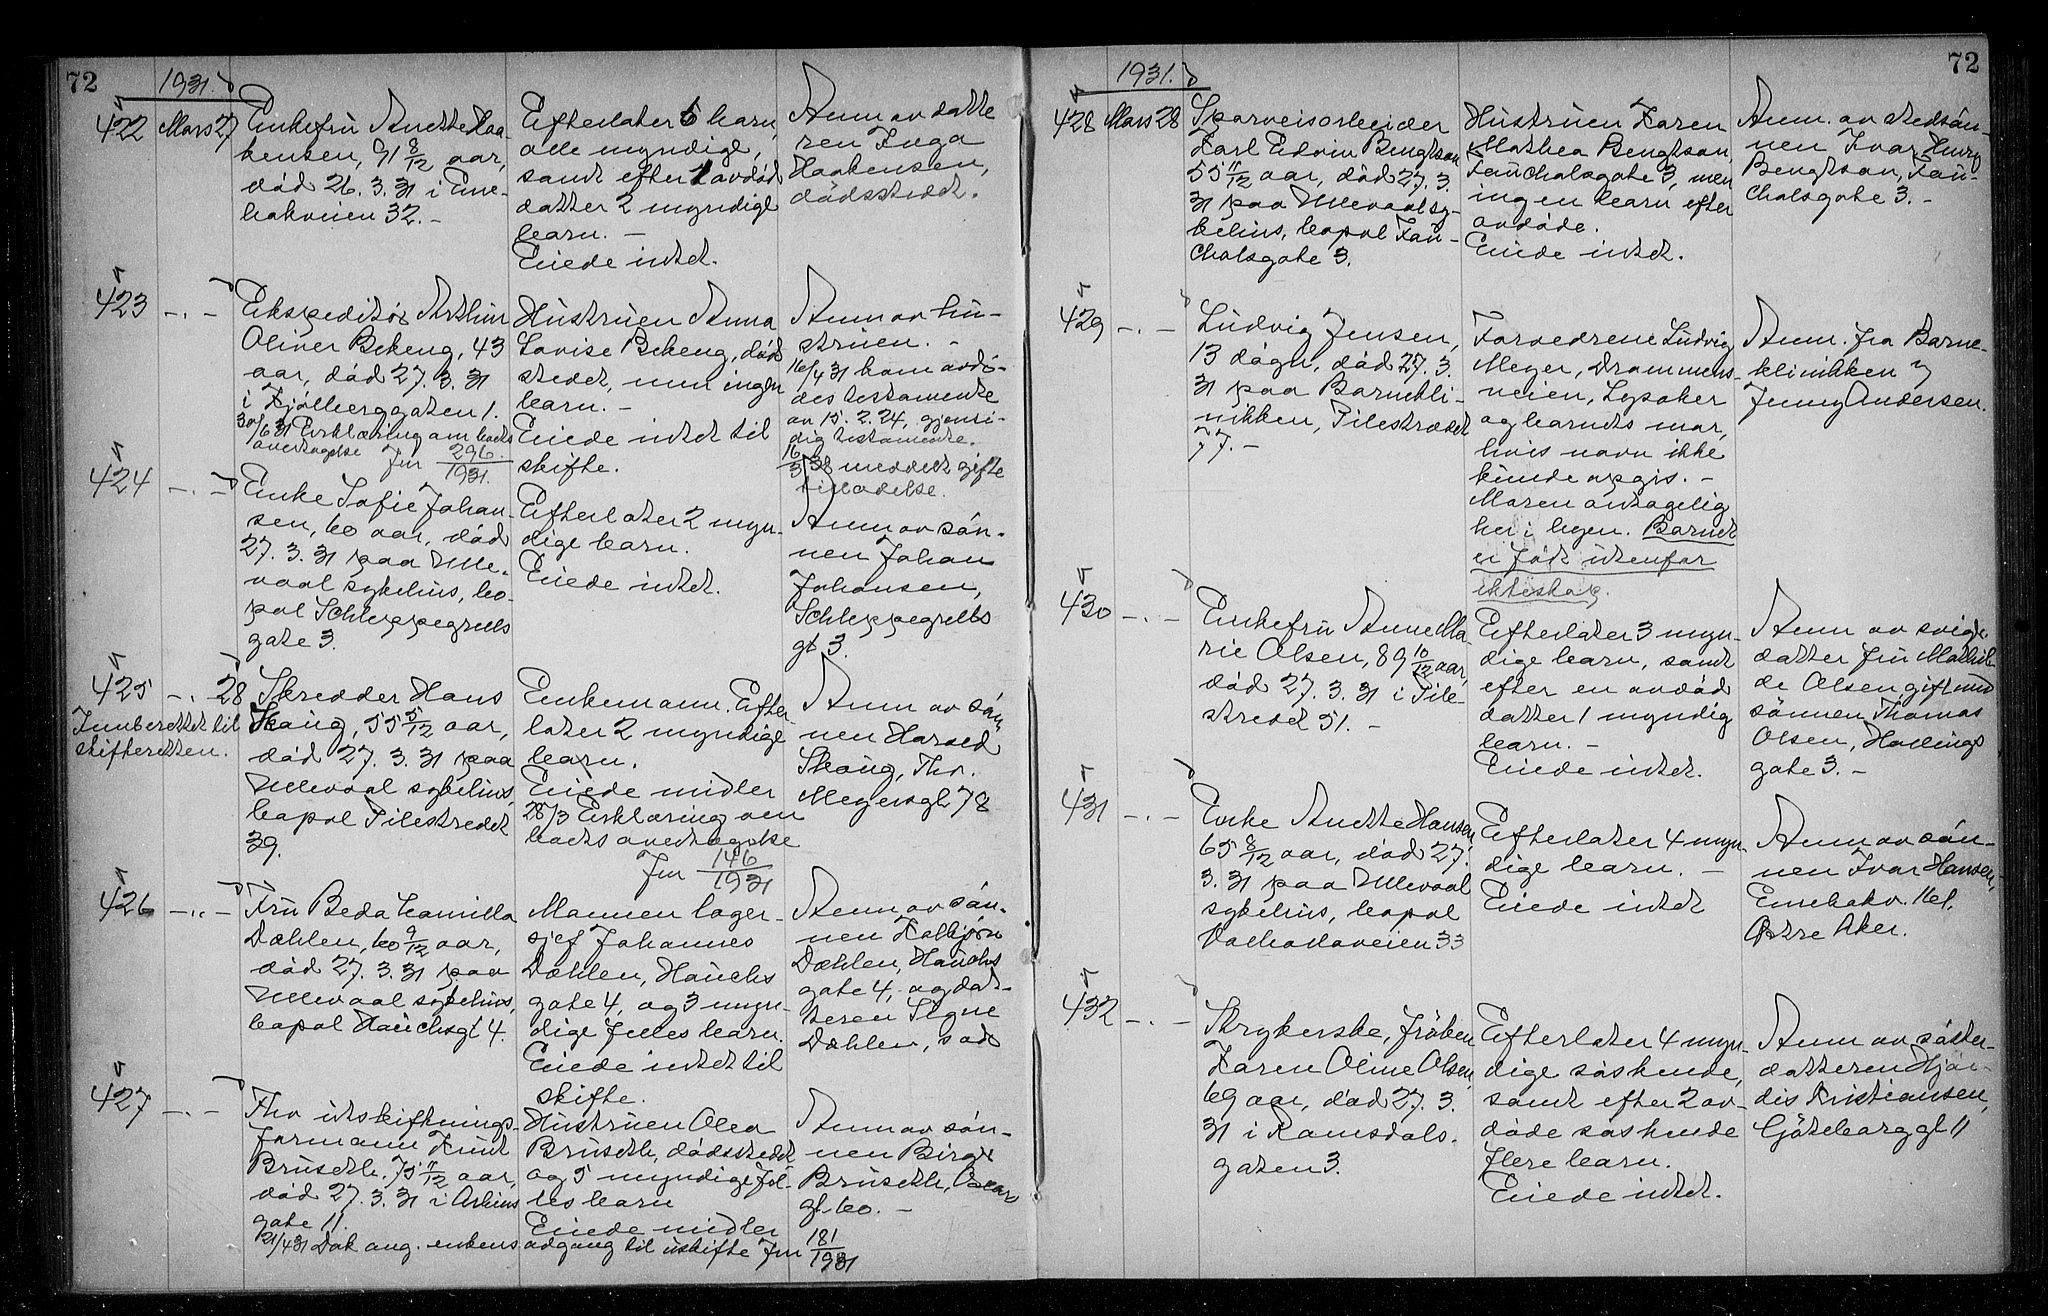 72
1931.
422 Mars 27
Enkefru Anette Haa-
kensen, 91 8/12 aar,
død 26.3.31 i Ene-
bakveien 32.-
Efterlater 6 barn,
alle myndige,
samt efter 1 avdød
datter 2 myndige
barn. -
Eiede intet.
Anm av datte
ren Inga
Haakensen,
dødsstedet.
423 -.-
Ekspeditør Arthur
Oliver Bekeng, 43
aar, død 27.3.31
i Kjølberggaten 1.
30/6 31 Erklæring om boets
overtagelse Jnr 296/1931.
Hustruen Anna
Lovise Bekeng, død
stedet, men ingen
barn. -
Eiede intet til
skifte.
Anm av hu-
struen. -
16/4 31 kom avdø-
des testamente
av 15.2.24, gjensi-
dig testamente.
16/3 38 meddelt gifte
tilladelse.
424 -.-
Enke Sofie Johan-
sen, 60 aar, død
27.3.31 paa Ulle-
vaal sykehus, bo-
pæl Schleppegrells
gate 3.
Efterlater 2 myn-
dige barn.
Eiede intet.
Anm av søn-
nen Johan
Johansen,
Schleppegrells
gt 3.
425 -.- 28
Innberettet til
skifteretten.
Skredder Hans
Skaug, 55 5/12 aar,
død 27.3.31 paa
Ullevaal sykehus,
bopæl Pilestredet
39.
Enkemann. Efter-
later 2 myndige
barn.
Eiede midler
28/3 Erklæring om
boets overtagelse
Jnr 146/1931
Anm av søn-
nen Harald
Skaug, Thv.
Meyersgt 78
426 -.-
Fru Beda Kamilla
Dæhlen, 60 9/12 aar,
død 27.3.31 paa
Ullevaal sykehus,
bopæl Hauchsgt 4.
Mannen lager-
sjef Johannes
Dæhlen, Hauchs
gate 4, og 3 myn-
dige felles barn.
Eiede intet til
skifte.
Anm av søn-
nen Kolbjørn
Dæhlen, Hauchs
gate 4, og dat-
teren Signe
Dæhlen, s ad
427 -.-
Fhv utskiftnings-
formann Knut
Bruseth, 75 11/12 aar,
død 27.3.31 i Asbjørns
gate 11.
21/4 31 Dok ang. enkens adgang til uskifte Jnr 181/1931
Hustruen Olea
Bruseth, dødsstedet
og 5 myndige fel-
les barn
Eiede midler
Anm av søn-
nen Birger
Bruseth, Oscars
gt 60. -
72
1931.
428 Mars 28
Sporveisarbeider
Karl Edvin Bengtson
55 11/12 aar, død 27.3.
31 paa Ullevaal sy-
kehus, bopæl Fau-
chalsgate 3.
Hustruen Karen
Mathea Bengtson,
Fauchalsgate 3, men
ingen barn efter
avdøde.
Eiede intet.
Anm. av stedsøn-
nen Ivar Henry
Bengtson, Fau-
chalsgate 3. -
429 -.-
Ludvig Jensen,
13 døgn, død 27.3.
31 paa Barnekli-
nikken, Pilestredet
77. -
Forældrene Ludvig
Meyer, Drammens-
veien, Lysaker
og barnets mor,
hvis navn ikke
kunde opgis. -
Moren antagelig
her i byen. Barnet
er født utenfor
ekteskap.
Anm. fra Barne-
klinikken v
Jenny Andersen.
430 -.-
Enkefru Anne Ma
rie Olsen, 89 10/12 aar,
død 27.3.31 i Pile-
stredet 51. -
Efterlater 3 myn-
dige barn, samt
efter en avdød
datter 1 myndig
barn. -
Eiede intet.
Anm av sviger
datter fru Mathil
de Olsen, gift med
sønnen Thomas
Olsen, Hallings
gate 3. -
431 -.-
Enke Anette Hansen
65 8/12 aar, død 27.
3.31 paa Ullevaal
sykehus, bopæl
Valhallaveien 33
Efterlater 4 myn-
dige barn. -
Eiede intet
Anm av søn-
nen Ivar Hansen,
Enebakv. 161,
Østre Aker.
432 -.-
Strykerske, frøken
Karen Oline Olsen,
69 aar, død 27.3.
31 i Ramsdals-
gaten 3.
Efterlater 4 myn-
dige søskende,
samt efter 2 av-
døde søskende
flere barn.
Eiede intet.
Anm av søster-
datteren Hjør-
dis Kristiansen,
Gøteborggt 11